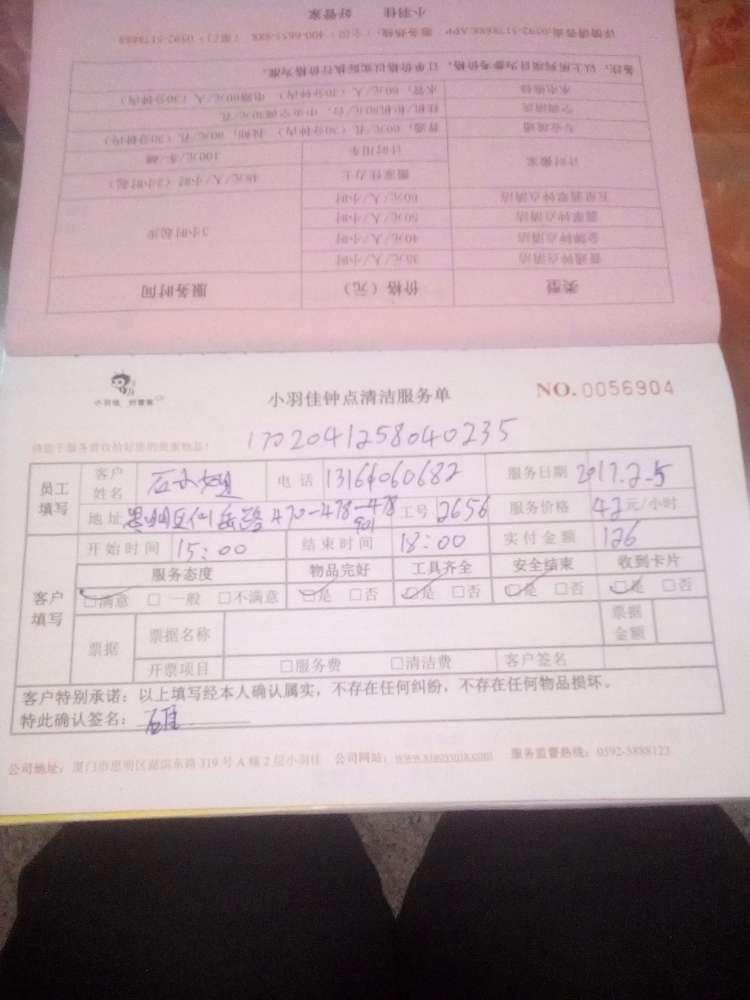 小羽佳 好管家
备注：以上所列项目为参考价格，订单价格以实际执行价格为准。
水电维修 水管，60元/人（30分钟内） 电路60元/人（30分钟内）
专业疏通 普通，60元/孔（30分钟内）
计时搬家 搬家佳力士 48元/人/小时（2小时起）
计时用车 100元/车/趟
五星翡翠钟点清洁 60元/人/小时
翡翠钟点清洁 50元/人/小时
金牌钟点清洁 40元/人/小时
普通钟点清洁 35元/人/小时 3小时起步
类型 价格（元） 服务时间
小羽佳 好管家
小羽佳钟点清洁服务单
NO.0056904
1702041258040235
员工填写
客户姓名 石小姐 电话 13164060682 服务日期 2017.2.5
地址 思明区仙岳路470-478-478 901 工号 2656 服务价格 42元/小时
客户填写
开始时间 15:00 结束时间 18:00 实付金额 126
服务态度 物品完好 工具齐全 安全结束 收到卡片
□满意 □一般 □不满意 □是 □否 □是 □否 □是 □否 □是 □否
票据 票据名称 票据金额
开票项目 □服务费 □清洁费 客户签名
客户特别承诺：以上填写经本人确认属实，不存在任何纠纷，不存在任何物品损坏。
特此确认签名：
公司地址：厦门市思明区湖滨东路319号A幢2层小羽佳 公司网站：www.xiaoyujia.com 服务监督热线：0592-5888123